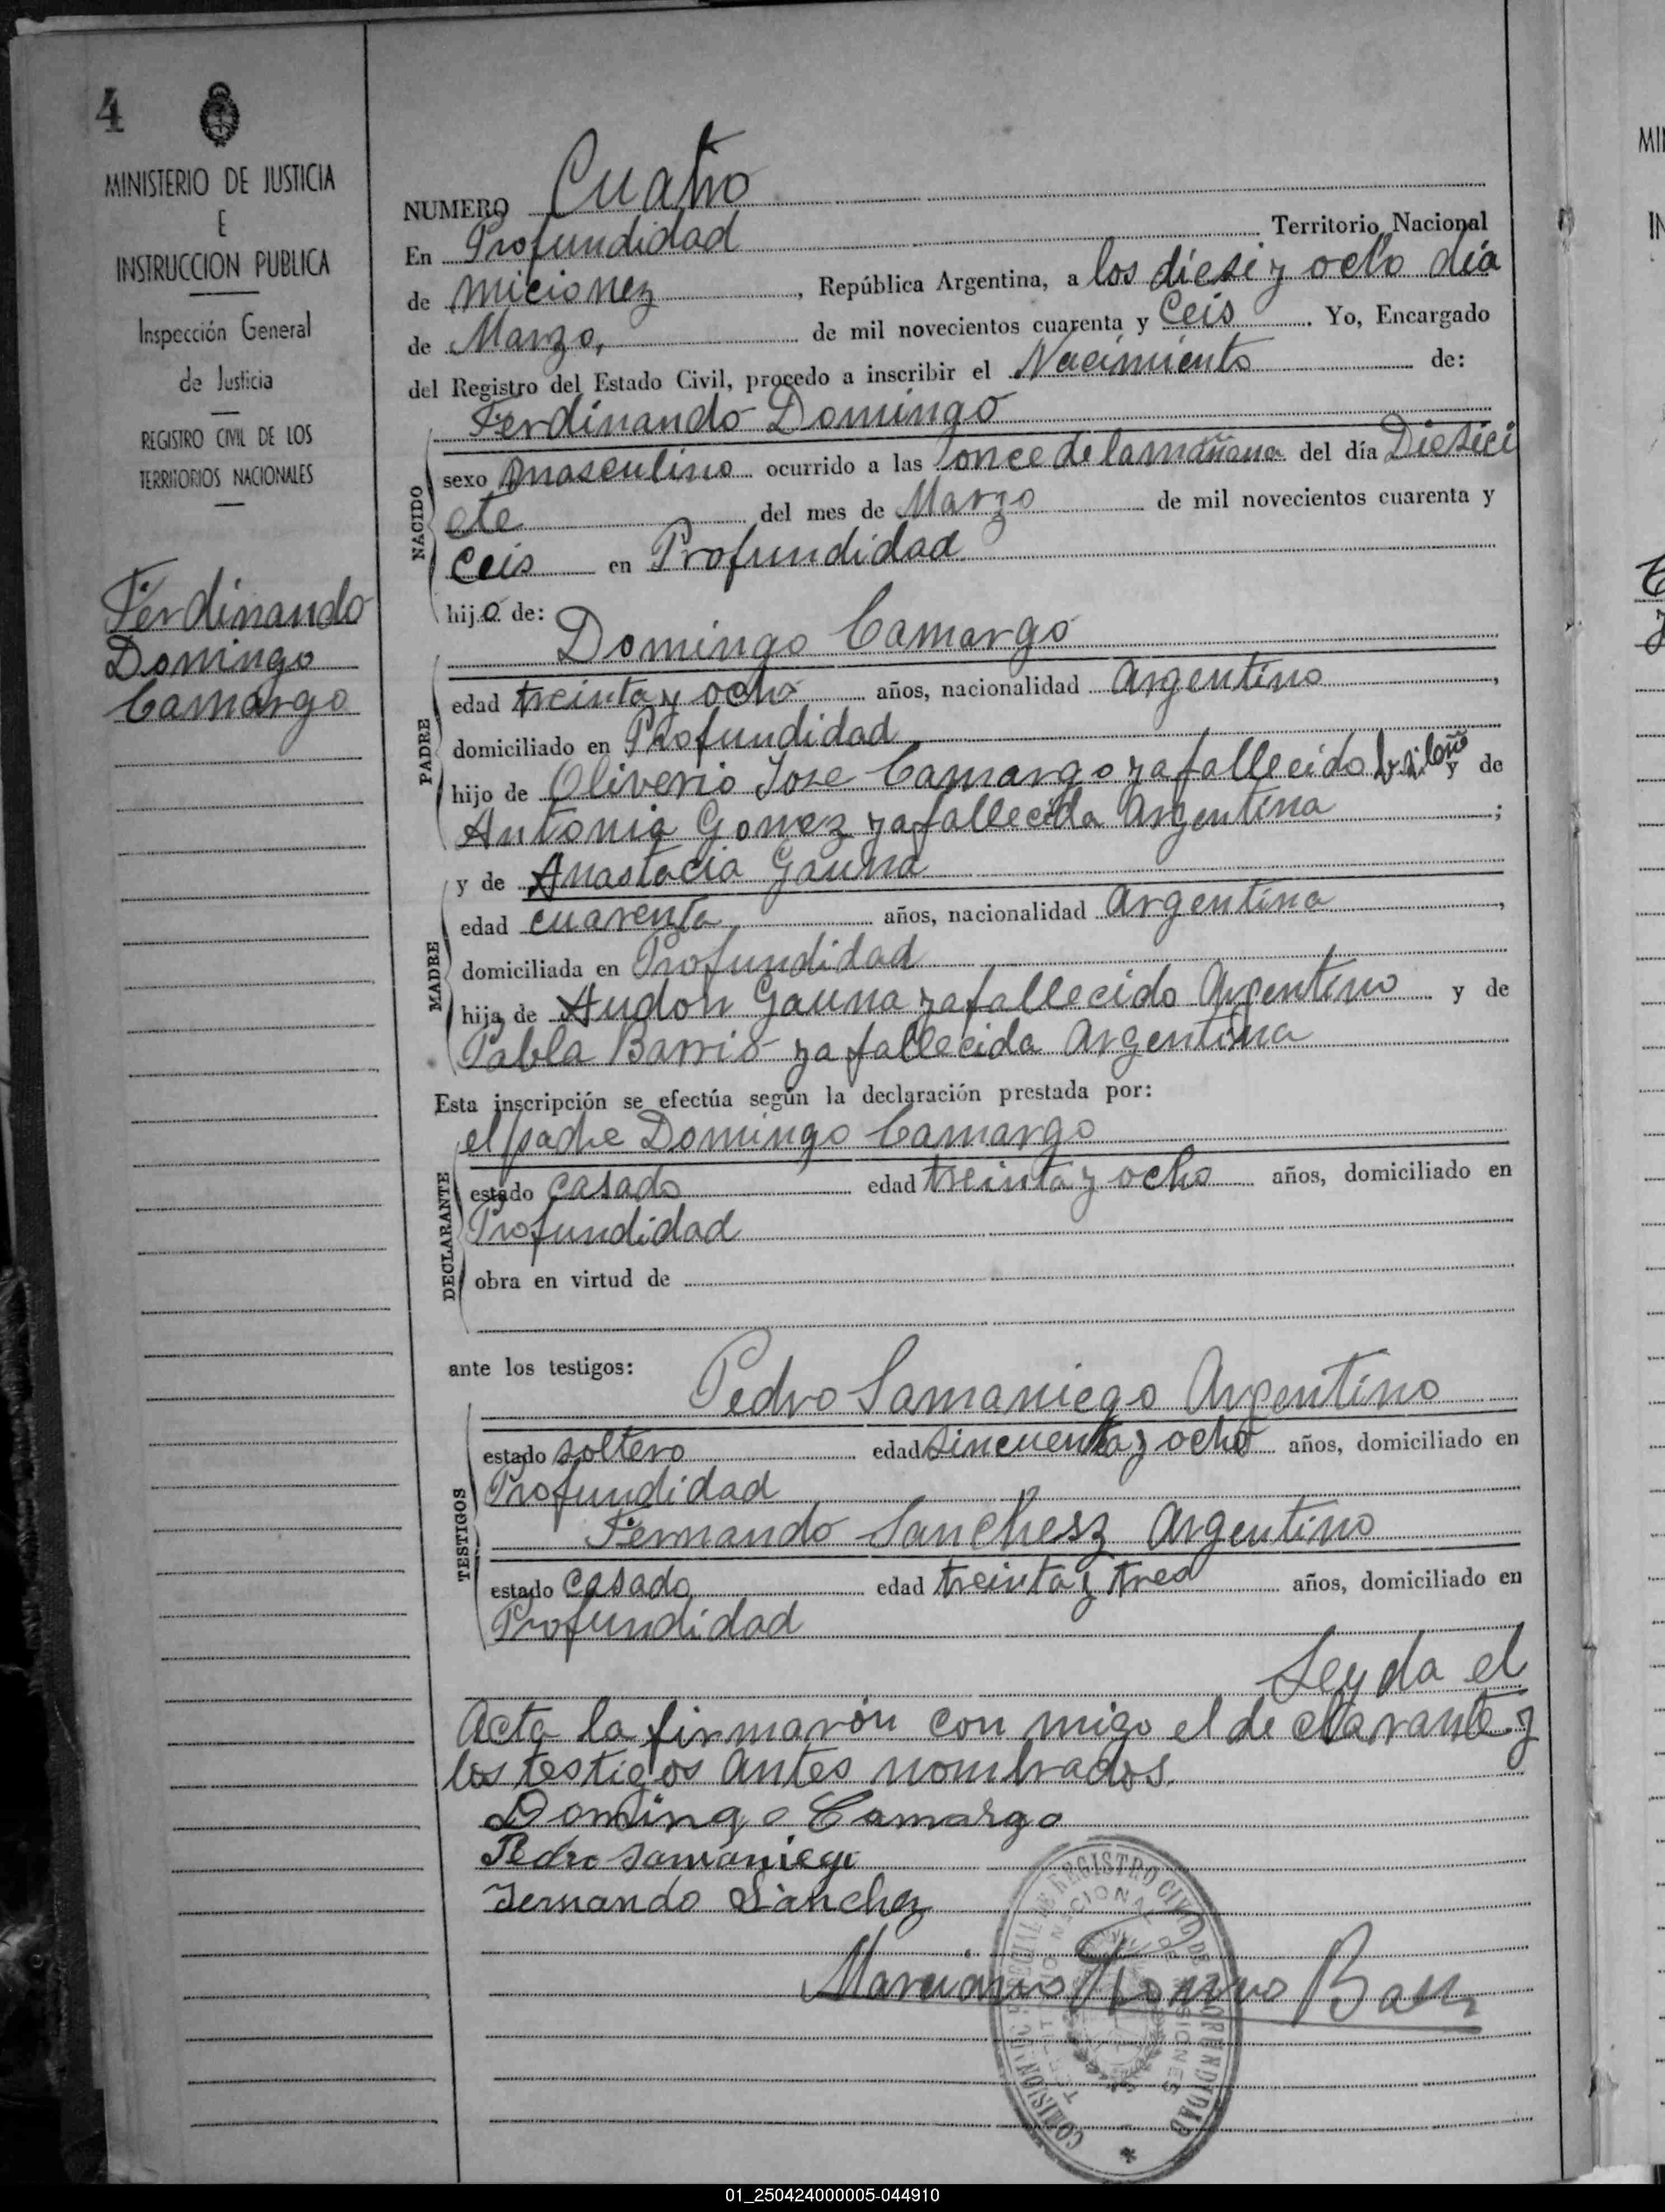 4
MINISTERIO DE JUSTICIA
E
INSTRUCCION PUBLICA
Inspección General
de Justicia
REGISTRO CIVIL DE LOS
TERRITORIOS NACIONALES
Ferdinando
Domingo
Camargo
NUMERO Cuatro
En Profundidad Territorio Nacional
de micionez, República Argentina, a los diesi y ocho día
de Marzo, de mil novecientos cuarenta y Ceis. Yo, Encargado
del Registro del Estado Civil, procedo a inscribir el Nacimiento de:
Ferdinando Domingo
NACIDO
sexo masculino ocurrido a las once de la mañana del día Diesici
ete del mes de Marzo de mil novecientos cuarenta y
Ceis en Profundidad
hijo de:
Domingo Camargo
PADRE
edad treinta y ocho años, nacionalidad Argentino,
domiciliado en Profundidad
hijo de Oliverio Jose Camargo ya fallecido y de
Antonia Gomez ya fallecida Argentina;
y de Anastacia Gauna
MADRE
edad cuarenta años, nacionalidad Argentina,
domiciliada en Profundidad
hija de Audon Gauna ya fallecido Argentino y de
Pabla Barrio ya fallecida Argentina
Esta inscripción se efectúa según la declaración prestada por:
el padre Domingo Camargo
DECLARANTE
estado casado edad treinta y ocho años, domiciliado en
Profundidad
obra en virtud de
ante los testigos:
Pedro Samaniego Argentino
TESTIGOS
estado soltero edad sincuenta y ocho años, domiciliado en
Profundidad
Fernando Sanchesz Argentino
estado casado edad treinta y tres años, domiciliado en
Profundidad
Leyda el
Acta la firmaron con migo el de clarante y
los testigos antes nombrados.
Domingo Camargo
Pedro Samaniego
Fernando Sanchez
REGISTRO CIVIL DE PROFUNDIDAD
01_250424000005-044910